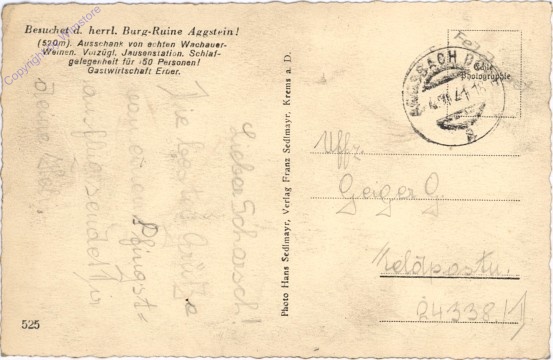 Besuchet d. herrl. Burg-Ruine Aggstein!
(520m). Ausschank von echten Wachauer-
Weinen. Vorzügl. Jausenstation. Schlaf-
gelegenheit für 50 Personen!
Gastwirtschaft Erber.
Lieber Schorsch!
Die besten Grüße
von einem Pfingst-
ausflug sendet Dir
Deine
Photo Hans Sedlmayr, Verlag Franz Sedlmayr, Krems a. D.
525
Feldpost
Echte
Photographie
AGGSBACH DORF
Uffz.
Geiger G
Feldpostnr.
24338